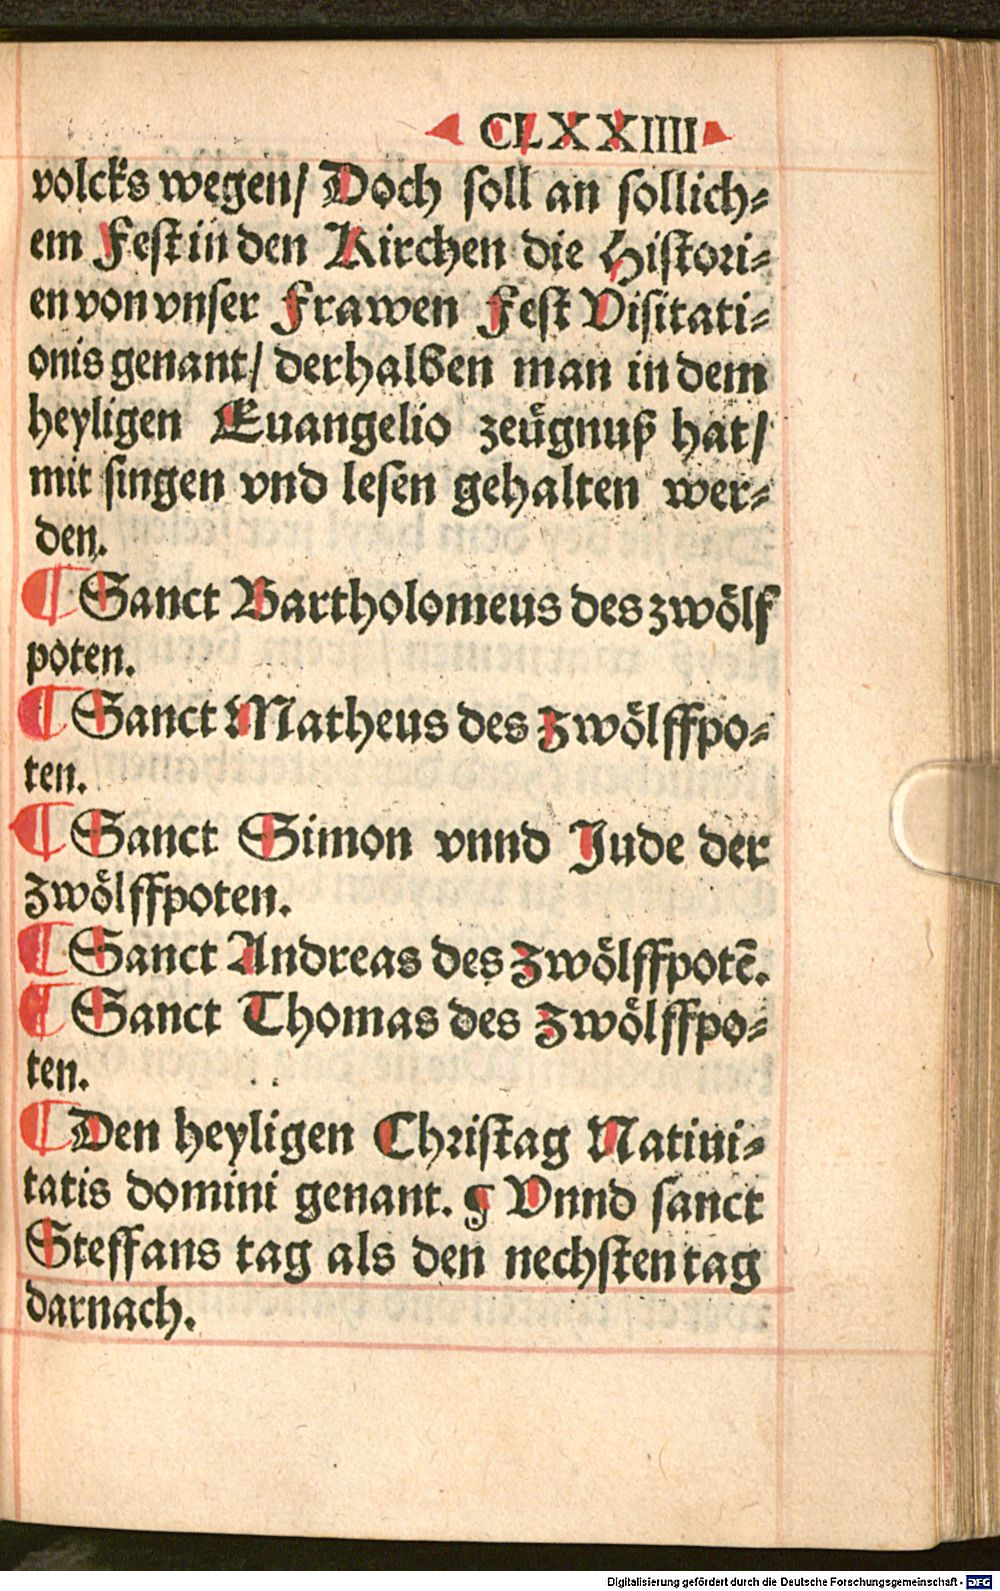 CLXXIIII
volcks wegen/ Doch soll an sollich⸗
em Fest in den Kirchen die Histori⸗
en von vnser Frawen Fest Visitati⸗
onis genant/ derhalben man in dem
heyligen Euangelio zeügnuß hat/
mit singen vnd lesen gehalten wer⸗
den.
¶ Sanct Bartholomeus des zwölf
poten.
¶ Sanct Matheus des Zwölffpo⸗
ten.
¶ Sanct Simon vnnd Jude der
Zwölffpoten.
¶ Sanct Andreas des Zwölffpotē.
¶ Sanct Thomas des Zwölffpo⸗
ten.
¶ Den heyligen Christag Natiui⸗
tatis domini genant. ¶ Vnnd sanct
Steffans tag als den nechsten tag
darnach.
Digitalisierung gefördert durch die Deutsche Forschungsgemeinschaft - DFG